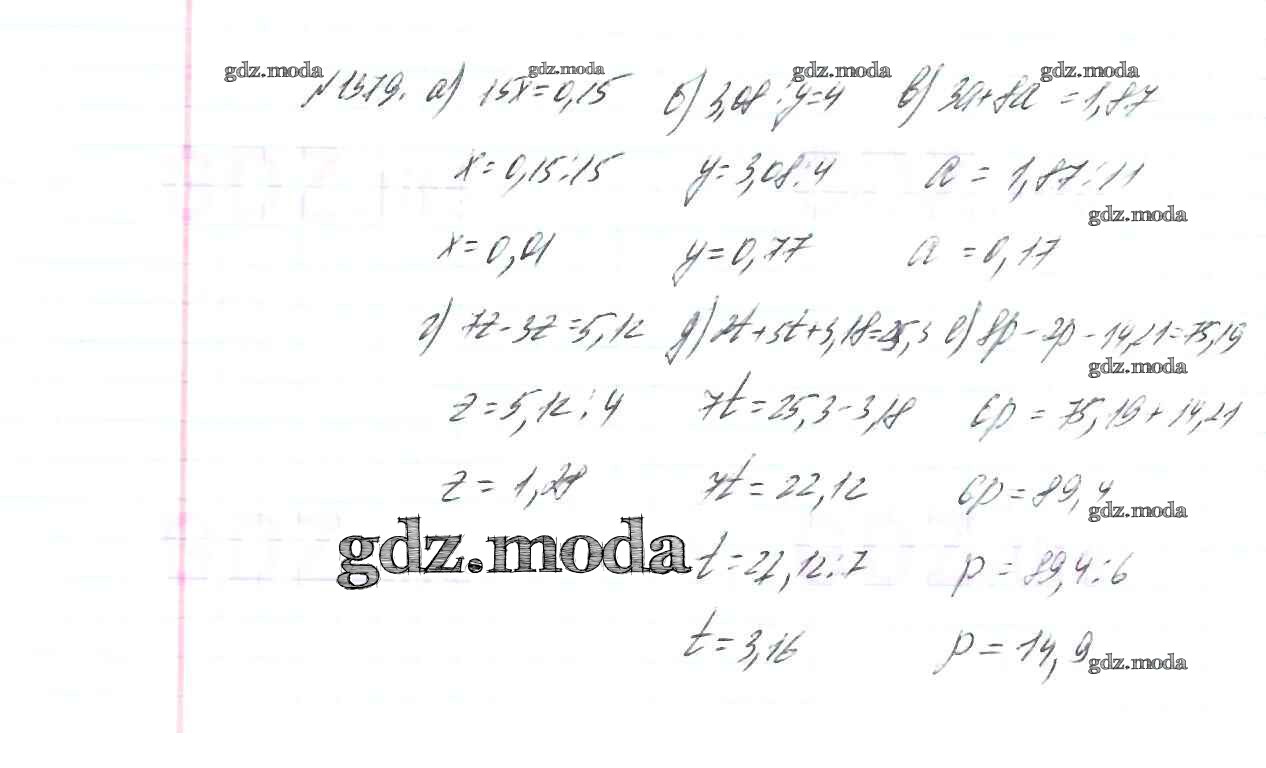 gdz.moda gdz.moda gdz.moda gdz.moda
№1379. а) 15x=0,15 б) 3,08:y=4 в) 3a+8a=1,87
x=0,15:15 y=3,08:4 a=1,87:11
gdz.moda
x=0,01 y=0,77 a=0,17
г) 7z-3z=5,12 д) 2t+5t+3,18=25,3 е) 8p-2p-14,21=75,19
gdz.moda
z=5,12:4 7t=25,3-3,18 6p=75,19+14,21
z=1,28 7t=22,12 6p=89,4
gdz.moda
gdz.moda t=22,12:7 p=89,4:6
t=3,16 p=14,9
gdz.moda